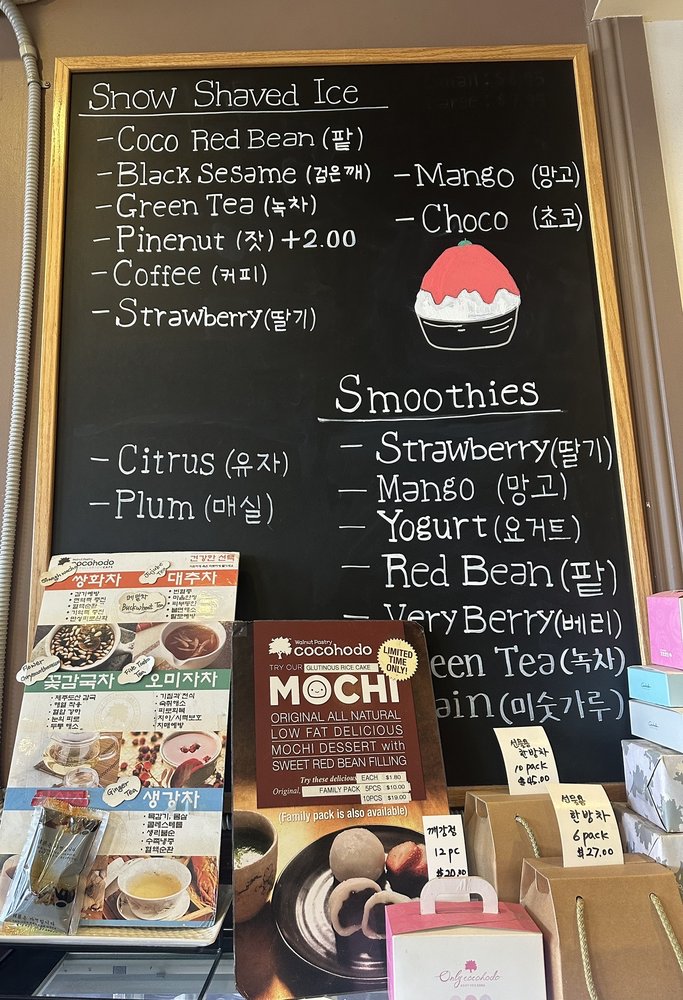 Snow Shaved Ice
- Coco Red Bean (팥)
- Black Sesame (검은깨)
- Green Tea (녹차)
- Pinenut (잣) +2.00
- Coffee (커피)
- Strawberry (딸기)
- Mango (망고)
- Choco (쵸코)
- Citrus (유자)
- Plum (매실)
Smoothies
- Strawberry (딸기)
- Mango (망고)
- Yogurt (요거트)
- Red Bean (팥)
- Very Berry (베리)
een Tea (녹차)
ain (미숫가루)
Walnut Pastry
cocohodo
건강한 선택
쌍화차
대추차
Jujube Tea
메밀차
Buckwheat Tea
꽃감국차
오미자차
Flower
Ginger Tea
생강차
Walnut Pastry
cocohodo
LIMITED
TIME
ONLY!
TRY OUR GLUTINOUS RICE CAKE
MOCHI
ORIGINAL ALL NATURAL
LOW FAT DELICIOUS
MOCHI DESSERT with
SWEET RED BEAN FILLING
Try these delicious
Original,
EACH $1.80
FAMILY PACK 5PCS $10.00
10PCS $19.00
(Family pack is also available)
깨강정
12 pc
$20.00
선물용
한방차
10 pack
$45.00
선물용
한방차
6 pack
$27.00
Only cocohodo